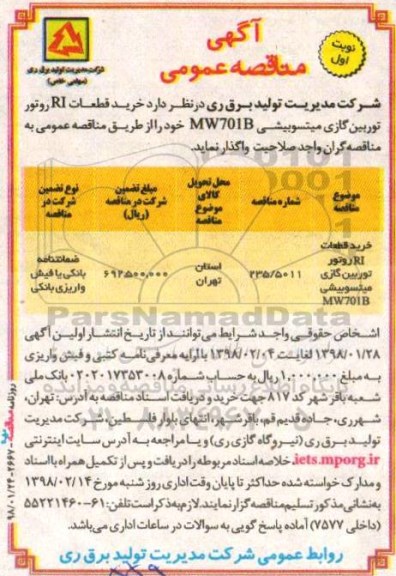 آگهی
مناقصه عمومی
نوبت
اول
شرکت مدیریت تولید برق ری
(سهامی خاص)
شرکت مدیریت تولید برق ری درنظر دارد خرید قطعات RI روتور
توربین گازی میتسوبیشی MW701B خود را از طریق مناقصه عمومی به
مناقصه گران واجد صلاحیت واگذار نماید.
موضوع مناقصه
شماره مناقصه
محل تحویل کالای موضوع مناقصه
مبلغ تضمین شرکت در مناقصه (ریال)
نوع تضمین شرکت در مناقصه
خرید قطعات
RI روتور
توربین گازی
میتسوبیشی
MW701B
۲۳۵/۵۰۱۱
استان
تهران
۶۹۲,۵۰۰,۰۰۰
ضمانتنامه
بانکی یا فیش
واریزی بانکی
ParsNamadData
اشخاص حقوقی واجد شرایط می توانند از تاریخ انتشار اولین آگهی
۱۳۹۸/۰۱/۲۸ لغایت ۱۳۹۸/۰۲/۰۴ با ارایه معرفی نامه کتبی و فیش واریزی
به مبلغ ۱,۰۰۰,۰۰۰ ریال به حساب شماره ۰۲۰۲۰۱۷۳۵۳۰۰۸ بانک ملی
شعبه باقر شهر کد ۸۱۷ جهت خرید و دریافت اسناد مناقصه به آدرس: تهران،
شهر ری، جاده قدیم قم، باقر شهر، انتهای بلوار فلسطین، شرکت مدیریت
تولید برق ری (نیروگاه گازی ری) و یا مراجعه به آدرس سایت اینترنتی
iets.mporg.ir، خلاصه اسناد مربوطه را دریافت و پس از تکمیل همراه با اسناد
و مدارک خواسته شده حداکثر تا پایان وقت اداری روز شنبه مورخ ۱۳۹۸/۰۲/۱۴
به نشانی مذکور تسلیم مناقصه گزار نمایند. لازم به ذکر است تلفن: ۶۱-۵۵۲۲۱۴۶۰
(داخلی ۷۵۷۷) آماده پاسخ گویی به سوالات در ساعات اداری می باشد.
روابط عمومی شرکت مدیریت تولید برق ری